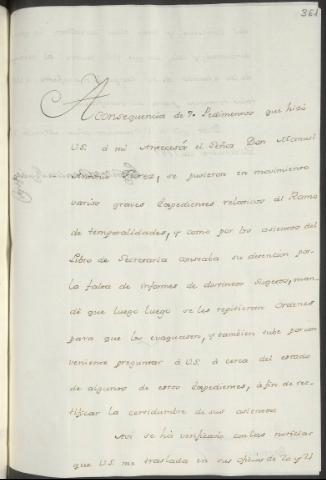 361
A consequencia de 70 Pedimentos que hizo
U.S. á mi Antecesór el Señor Don Manuel
Antonio Florez, se pusieron en movimiento
varios graves Expedientes relativos al Ramo
de temporalidades, y como por los asientos del
Libro de Secretaria constaba su detencion por
la falta de informes de distintos Sugetos, man-
dé que luego luego se les repitieran Ordenes
para que los evaquasen, y tambien tube por con
veniente preguntar á U.S. á cerca del estado
de algunos de estos Expedientes, á fin de rec-
tificar la certidumbre de sus asientos.
Asi se há verificado con las noticias
que U.S. me traslada en sus oficios de 20 y 21